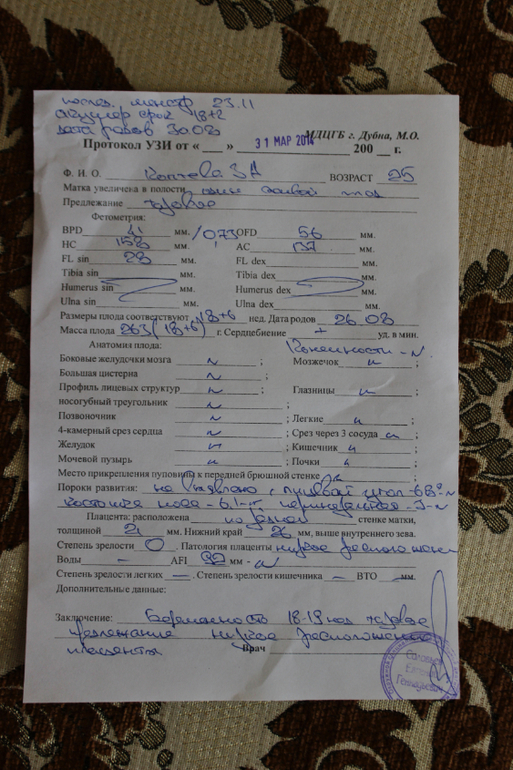 послед. менстр 23.11
акушер срок 18+2
дата родов 30.08
МДЦГБ г. Дубна, М.О.
Протокол УЗИ от « » 31 МАР 2014 200 г.
Ф. И. О. З А ВОЗРАСТ 25
Матка увеличена в полости один живой плод
Предлежание тазовое
Фетометрия:
BPD 41 мм. /073 OFD 56 мм.
HC 158 мм. AC 137 мм.
FL sin 28 мм. FL dex мм.
Tibia sin мм. Tibia dex мм.
Humerus sin мм. Humerus dex мм.
Ulna sin мм. Ulna dex мм.
Размеры плода соответствуют 18+6 нед. Дата родов 26.08
Масса плода 263 (18+6) г. Сердцебиение + уд. в мин.
Анатомия плода: Конечности - N
Боковые желудочки мозга N ; Мозжечок N ;
Большая цистерна N ;
Профиль лицевых структур N ; Глазницы N ;
носогубный треугольник N ;
Позвоночник N ; Легкие N ;
4-камерный срез сердца N ; Срез через 3 сосуда N ;
Желудок N ; Кишечник N ;
Мочевой пузырь N ; Почки N ;
Место прикрепления пуповины к передней брюшной стенке N
Пороки развития: не выявлено лицевой угол - 68° - N
косточка носа - 6.1 - N
Плацента: расположена по задней стенке матки,
толщиной 21 мм. Нижний край 26 мм, выше внутреннего зева.
Степень зрелости 0 . Патология плаценты низкое расположение
Воды – AFI мм - N
Степень зрелости легких – . Степень зрелости кишечника – ВТО – мм.
Дополнительные данные:
Заключение: Беременность 18-19 нед тазовое
предлежание низкое расположение
плаценты Врач